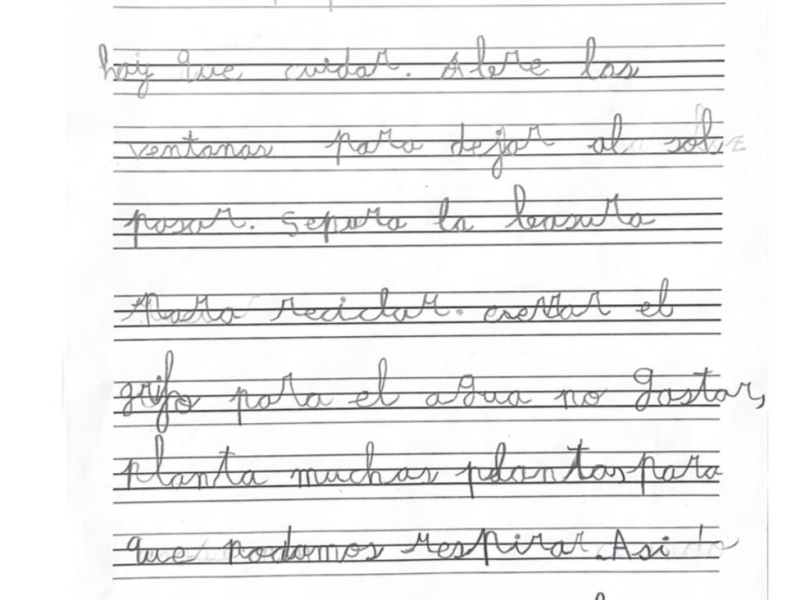 hay que cuidar. Abre las
ventanas para dejar al sol
pasar. Separa la basura
Para reciclar. cerrar el
grifo para el agua no gastar,
planta muchas plantas para
que podamos respirar. Asi